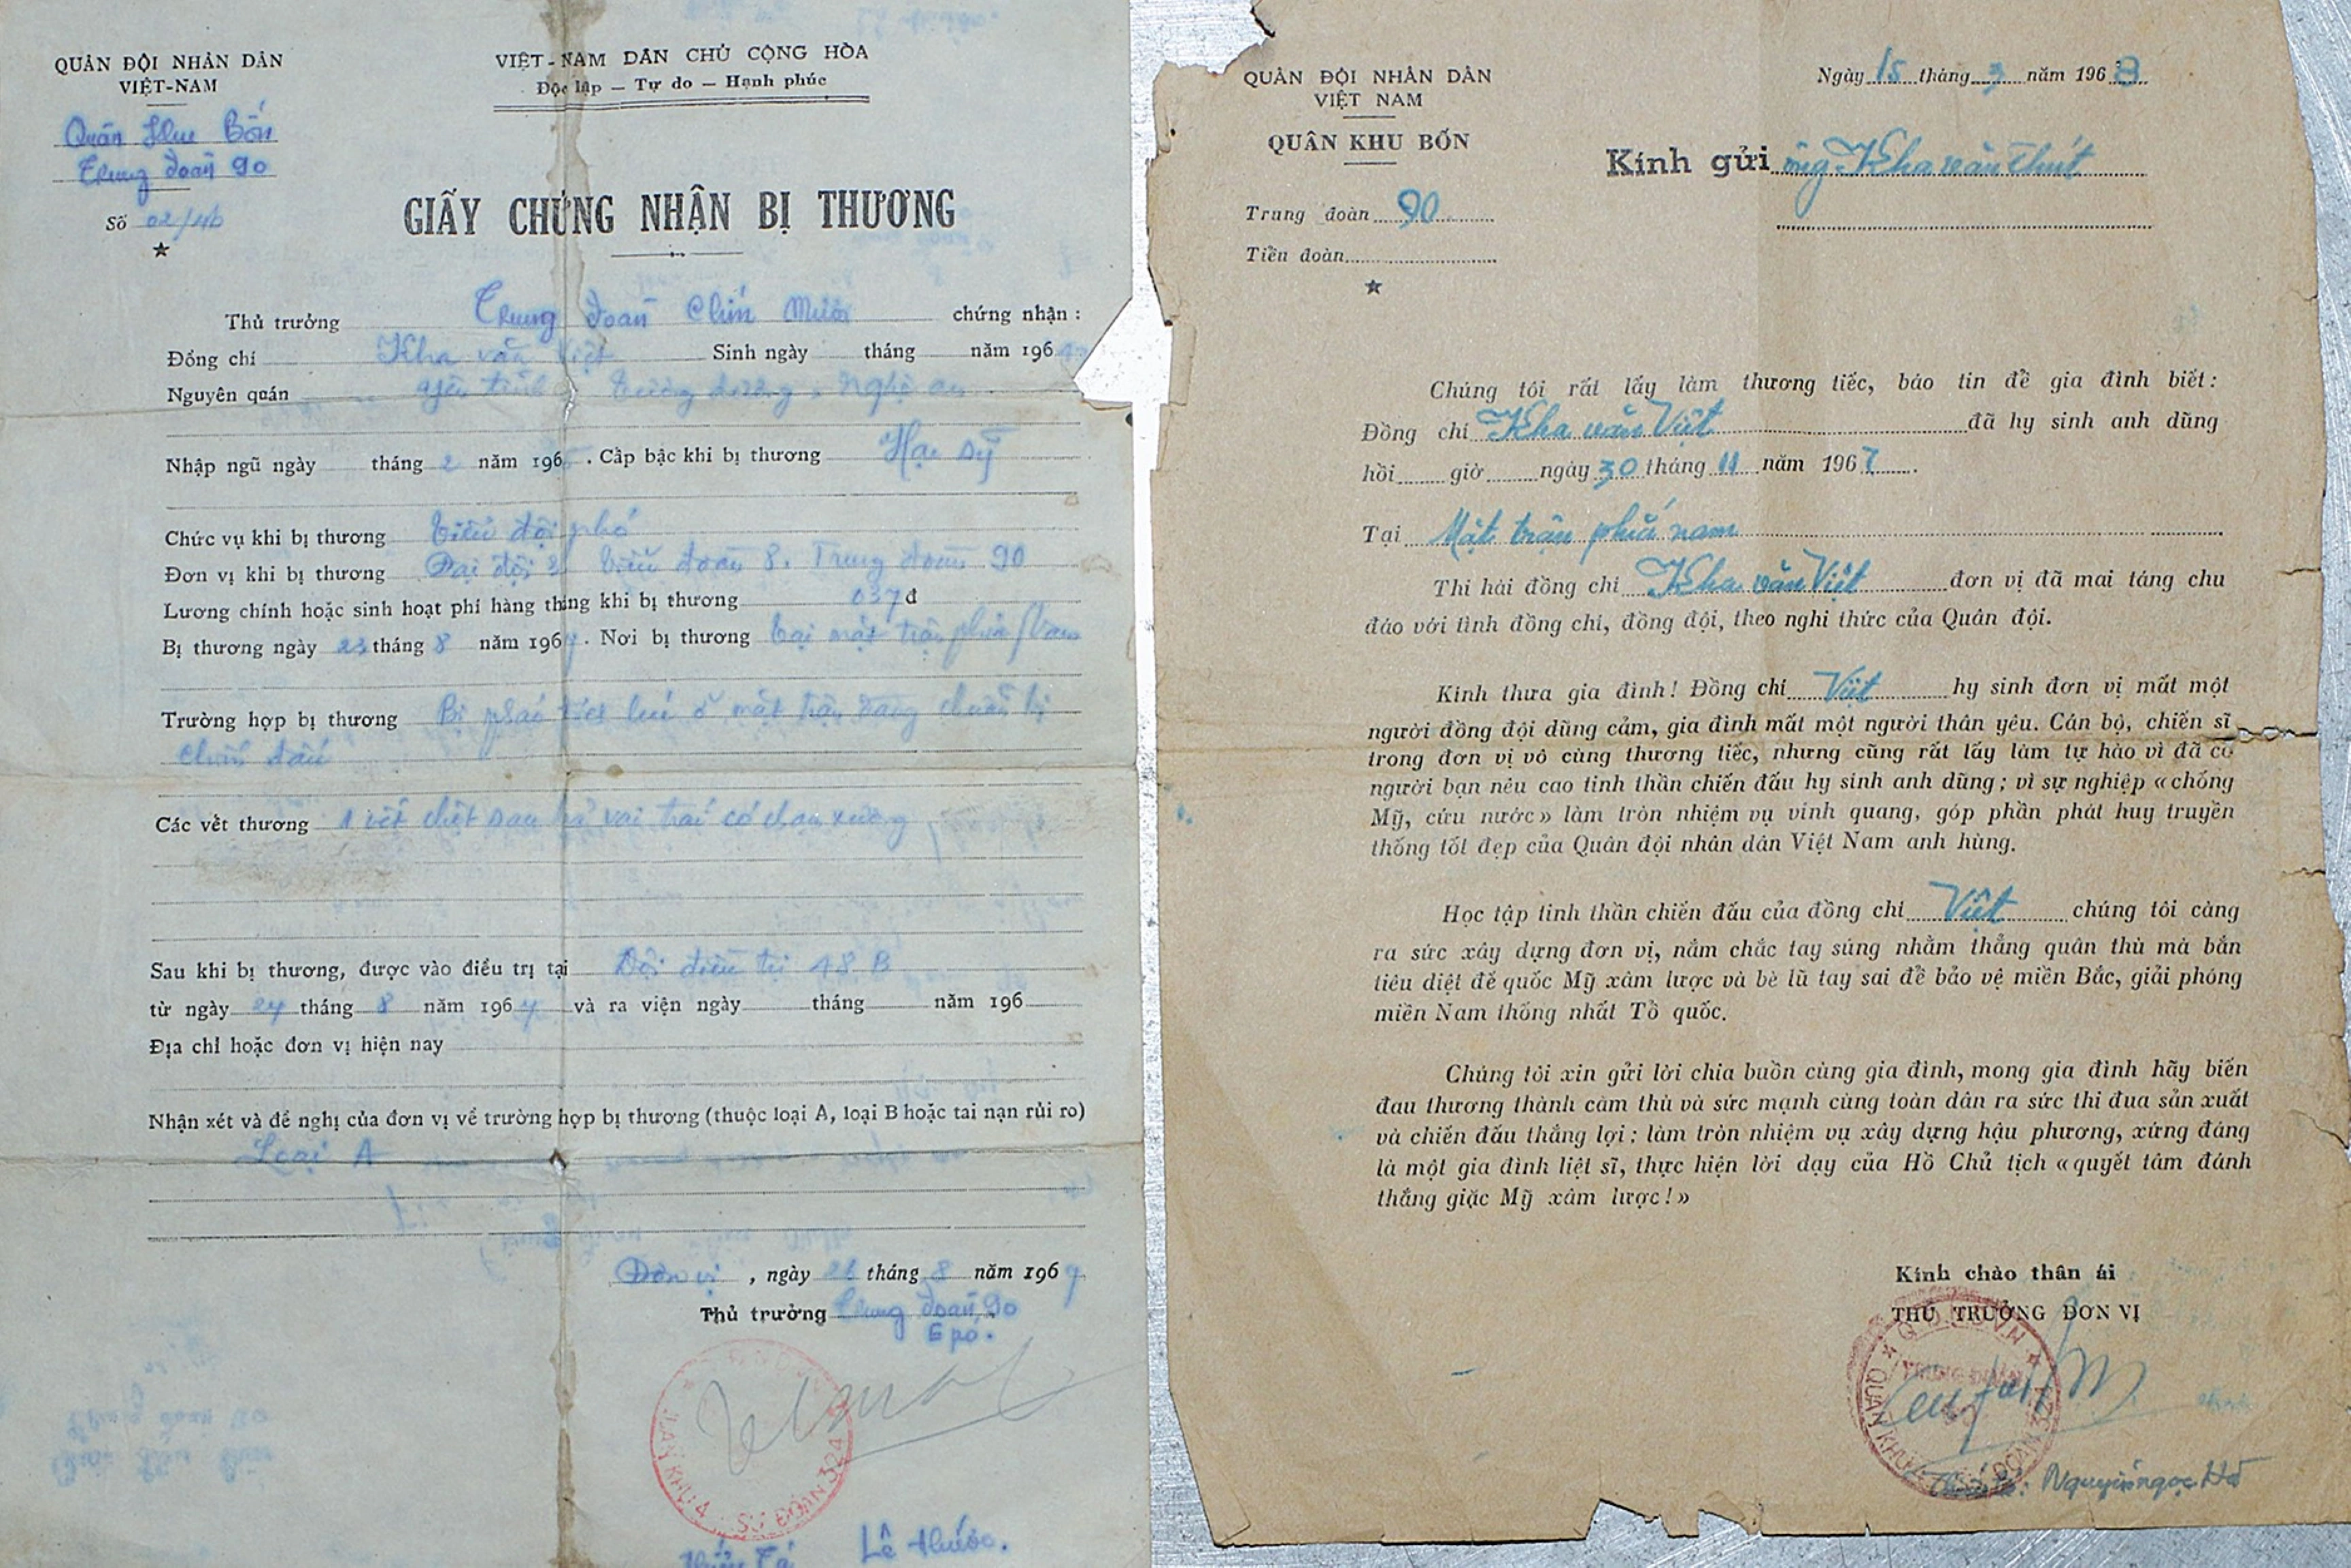 QUÂN ĐỘI NHÂN DÂN
VIỆT-NAM
Quân Khu Bốn
Trung đoàn 90
Số 02/4b
VIỆT-NAM DÂN CHỦ CỘNG HÒA
Độc lập — Tự do — Hạnh phúc
GIẤY CHỨNG NHẬN BỊ THƯƠNG
Thủ trưởng Trung đoàn Chín Mươi chứng nhận :
Đồng chí Kha văn Việt Sinh ngày tháng năm 196
Nguyên quán yên tĩnh tương dương, Nghệ an
Nhập ngũ ngày tháng 2 năm 196 . Cấp bậc khi bị thương Hạ sỹ
Chức vụ khi bị thương tiểu đội phó
Đơn vị khi bị thương Đại đội tiểu đoàn 8. Trung đoàn 90
Lương chính hoặc sinh hoạt phí hàng tháng khi bị thương đ
Bị thương ngày 23 tháng 8 năm 1967 . Nơi bị thương tại mặt trận phía Nam
Trường hợp bị thương Bị pháo lúc ở mặt trận đang chuẩn bị
chiến đấu
Các vết thương 1 vết sau bả vai trái có chạm xương
Sau khi bị thương, được vào điều trị tại Đội điều trị 48 B
từ ngày 24 tháng 8 năm 1967 và ra viện ngày tháng năm 196
Địa chỉ hoặc đơn vị hiện nay
Nhận xét và đề nghị của đơn vị về trường hợp bị thương (thuộc loại A, loại B hoặc tai nạn rủi ro)
Loại A
Đơn vị , ngày 26 tháng 8 năm 1967
Thủ trưởng Trung đoàn 90
QUÂN KHU 4 SƯ ĐOÀN 324
Thiếu Tá Lê thước.
QUÂN ĐỘI NHÂN DÂN
VIỆT NAM
QUÂN KHU BỐN
Trung đoàn 90
Tiểu đoàn
Ngày 15 tháng 3 năm 1968
Kính gửi ông Kha văn Thút
Chúng tôi rất lấy làm thương tiếc, báo tin để gia đình biết :
Đồng chí Kha văn Việt đã hy sinh anh dũng
hồi giờ ngày 30 tháng 11 năm 1967.
Tại Mặt trận phía nam
Thi hài đồng chí Kha văn Việt đơn vị đã mai táng chu
đáo với tình đồng chí, đồng đội, theo nghi thức của Quân đội.
Kính thưa gia đình ! Đồng chí Việt hy sinh đơn vị mất một
người đồng đội dũng cảm, gia đình mất một người thân yêu. Cán bộ, chiến sĩ
trong đơn vị vô cùng thương tiếc, nhưng cũng rất lấy làm tự hào vì đã có
người bạn nêu cao tinh thần chiến đấu hy sinh anh dũng ; vì sự nghiệp « chống
Mỹ, cứu nước » làm tròn nhiệm vụ vinh quang, góp phần phát huy truyền
thống tốt đẹp của Quân đội nhân dân Việt Nam anh hùng.
Học tập tinh thần chiến đấu của đồng chí Việt chúng tôi càng
ra sức xây dựng đơn vị, nắm chắc tay súng nhằm thẳng quân thù mà bắn
tiêu diệt đế quốc Mỹ xâm lược và bè lũ tay sai để bảo vệ miền Bắc, giải phóng
miền Nam thống nhất Tổ quốc.
Chúng tôi xin gửi lời chia buồn cùng gia đình, mong gia đình hãy biến
đau thương thành căm thù và sức mạnh cùng toàn dân ra sức thi đua sản xuất
và chiến đấu thắng lợi ; làm tròn nhiệm vụ xây dựng hậu phương, xứng đáng
là một gia đình liệt sĩ, thực hiện lời dạy của Hồ Chủ tịch « quyết tâm đánh
thắng giặc Mỹ xâm lược ! »
Kính chào thân ái
THỦ TRƯỞNG ĐƠN VỊ
Nguyễn ngọc